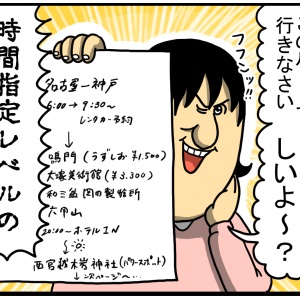 行きなさい
しいよ～？
フフンッ
名古屋ー神戸
6:00→9:30～
レンタカー予約
↓
鳴門（うずしお¥1.500）
大塚美術館（¥3.300）
和三盆
六甲山
20:00～ホテルIN
↓
西宮越木岩神社（パワースポット）
↓次ページへ…
時間指定レベルの